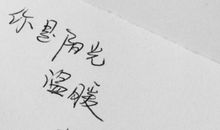 你是阳光
温暖